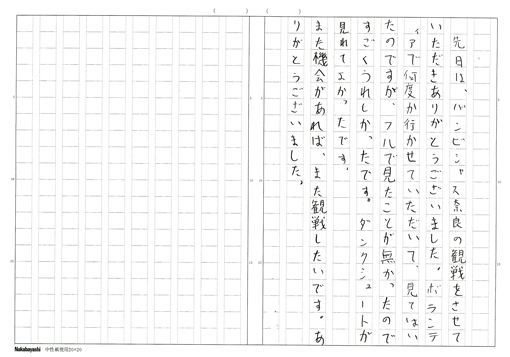 先日は、バンビシャス奈良の観戦をさせて
いただきありがとうございました。ボランテ
ィアで何度か行かせていただいて、見てはい
たのですが、フルで見たことが無かったので
すごくうれしかったです。ダンクシュートが
見れてよかったです。
また機会があれば、また観戦したいです。あ
りがとうございました。
Nakabayashi 中性紙使用20×20